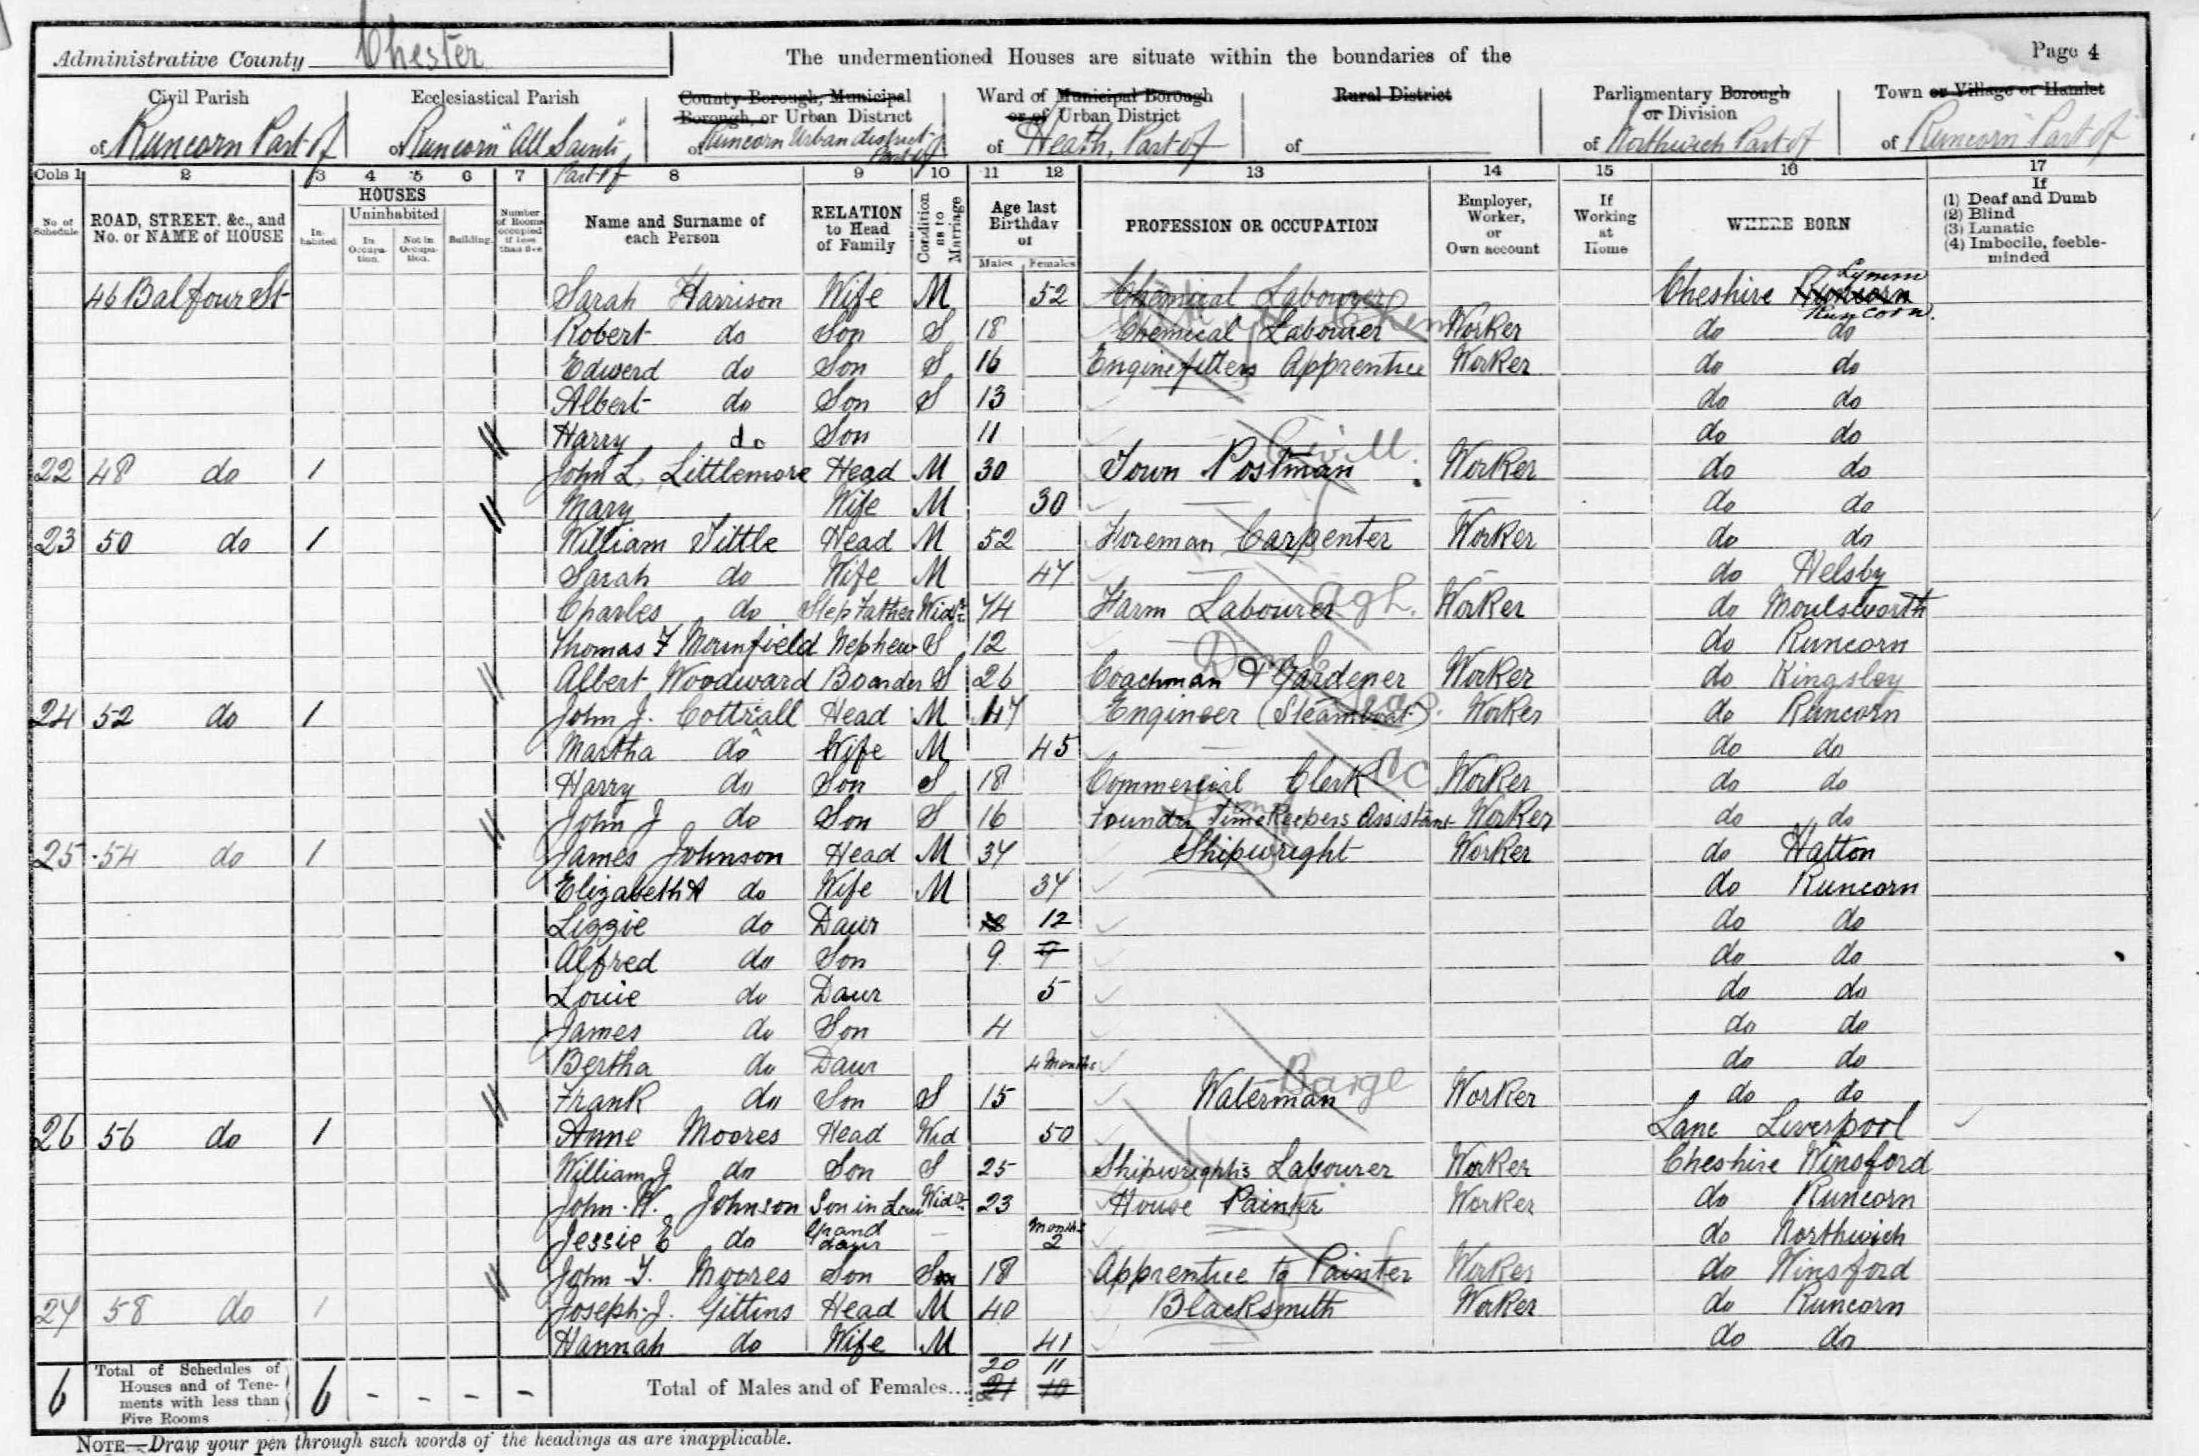 Administrative County Chester
The undermentioned Houses are situate within the boundaries of the
Page 4
Civil Parish
of Runcorn Part of
Ecclesiastical Parish
of Runcorn "All Saints" Part of
County Borough, Municipal Borough, or Urban District
of Runcorn Urban district Part of
Ward of Municipal Borough or of Urban District
of Heath, Part of
Rural District
of
Parliamentary Borough or Division
of Northwich Part of
Town or Village or Hamlet
of Runcorn Part of
Cols 1 2 3 4 5 6 7 8 9 10 11 12 13 14 15 16 17
No. of Schedule
ROAD, STREET, &c., and No. or NAME of HOUSE
HOUSES
Inhabited
Uninhabited
In Occupation.
Not in Occupation.
Building.
Number of Rooms occupied if less than five
Name and Surname of each Person
RELATION to Head of Family
Condition as to Marriage
Age last Birthday of
Males Females
PROFESSION OR OCCUPATION
Employer, Worker, or Own account
If Working at Home
WHERE BORN
If
(1) Deaf and Dumb
(2) Blind
(3) Lunatic
(4) Imbecile, feeble-minded
46 Balfour St Sarah Harrison Wife M 52 Chemical Labourer Cheshire Runcorn Lymm
Robert do Son S 18 Chemical Labourer Chem Worker do do Runcorn.
Edward do Son S 16 Engine fitters Apprentice Worker do do
Albert do Son S 13 do do
Harry do Son 11 do do
22 48 do 1 John L. Littlemore Head M 30 Town Postman Worker do do
Mary Wife M 30 — do do
23 50 do 1 William Tittle Head M 52 Foreman Carpenter Worker do do
Sarah do Wife M 47 — — do Helsby
Charles do Step Father Widr 74 Farm Labourer Ag L. Worker do Moulsworth
Thomas F Mounfield Nephew S 12 — do Runcorn
Albert Woodward Boarder S 26 Coachman & Gardener Worker do Kingsley
24 52 do 1 John J. Cottrall Head M 47 Engineer (Steamboat) Worker do Runcorn
Martha do Wife M 45 — do do
Harry do Son S 18 Commercial Clerk Worker do do
John J do Son S 16 Foundry Time Keepers Assistant Worker do do
25 54 do 1 James Johnson Head M 37 Shipwright Worker do Hatton
Elizabeth A do Wife M 37 do Runcorn
Lizzie do Daur 12 do do
Alfred do Son 9 9 do do
Louie do Daur 5 do do
James do Son 4 do do
Bertha do Daur 4 Months do do
Frank do Son S 15 Waterman Barge Worker do do
26 56 do 1 Anne Moores Head Wid 50 Lanc Liverpool
William J do Son S 25 Shipwright's Labourer Worker Cheshire Winsford
John W. Johnson Son in Law Widr 23 House Painter Worker do Runcorn
Jessie E do Grand daur — Months 2 do Northwich
John T. Moores Son S 18 Apprentice to Painter Worker do Winsford
27 58 do 1 Joseph J. Gittins Head M 40 Blacksmith Worker do Runcorn
Hannah do Wife M 41 do do
6 Total of Schedules of Houses and of Tenements with less than Five Rooms 6 - - - - Total of Males and of Females... 20 11
21 10
NOTE—Draw your pen through such words of the headings as are inapplicable.